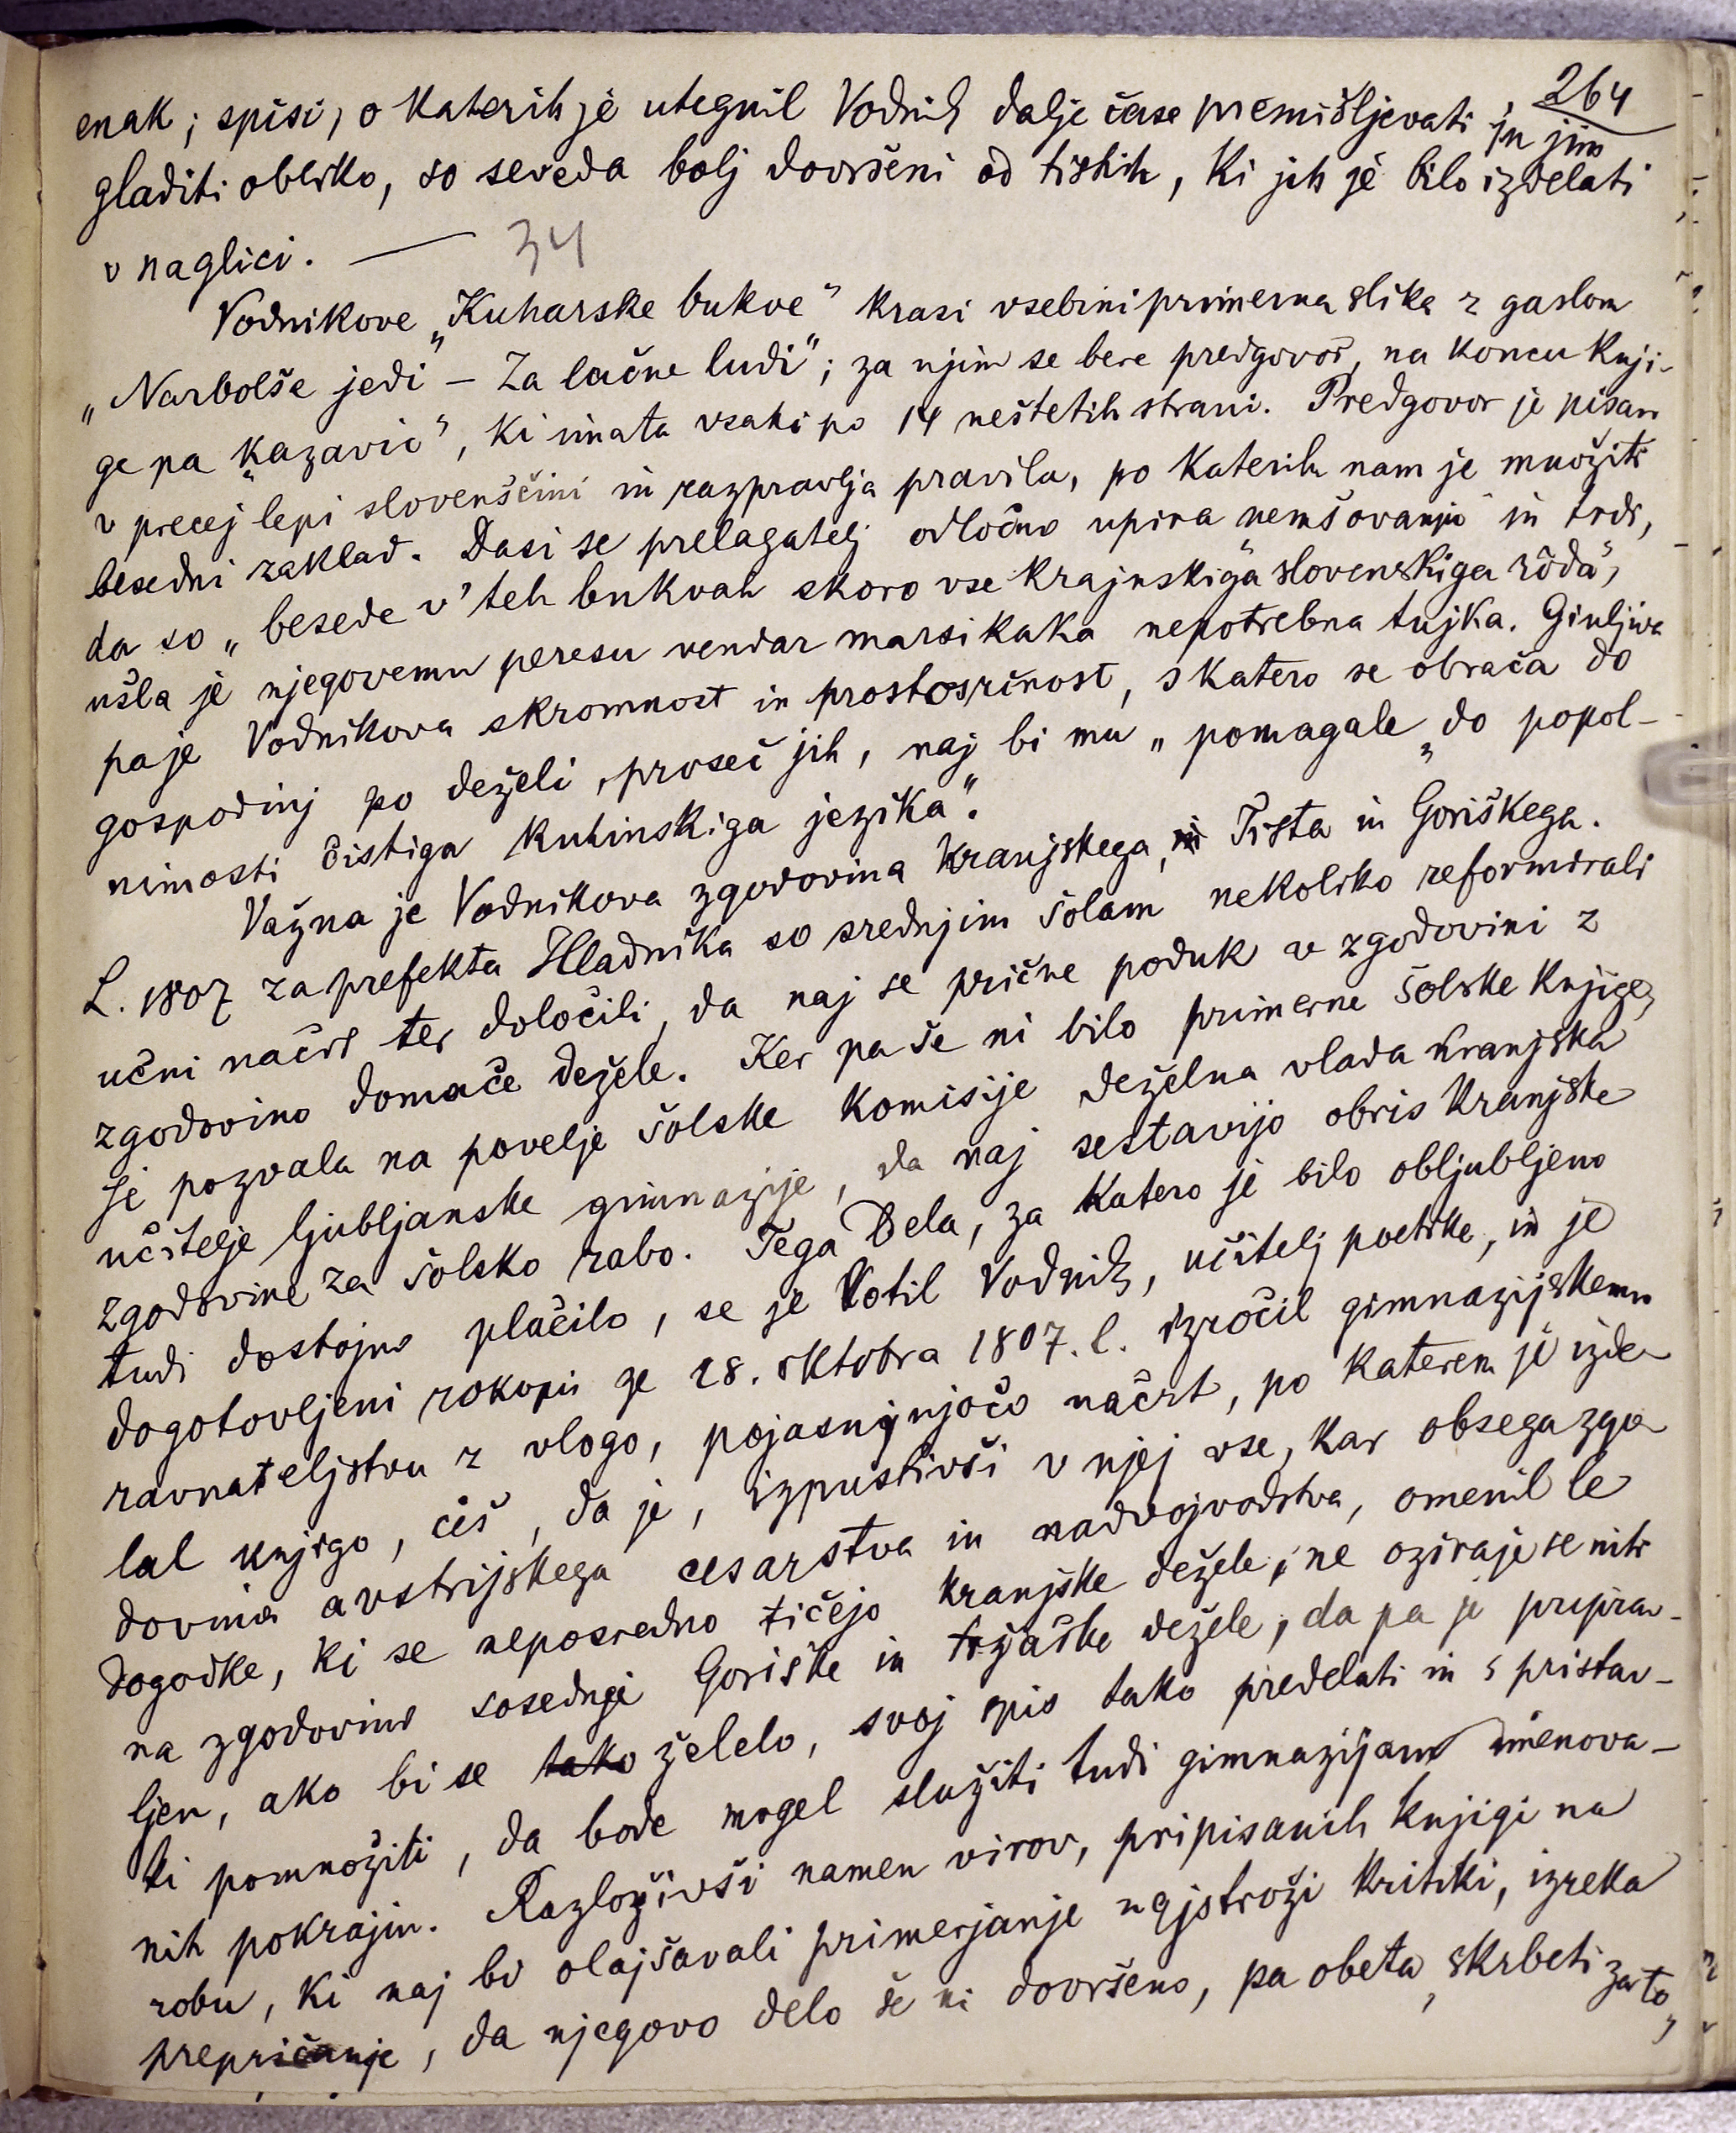 264
enak; spisi, o katerih je utegnil Vodnik dalje čase premišljevati in jim
gladiti obliko, so seveda bolj dovršeni od tistih, ki jih je bilo izdelati
v naglici. — 34
Vodnikove „Kuharske bukve" krasi vsebini primerna slika z gaslom
„Narbolše jedi – Za lačne ludi"; za njim se bere predgovor, na koncu knji-
ge pa „kazavic", ki imata vsaki po 14 neštetih strani. Predgovor je pisan
v precej lepi slovenščini in razpravlja pravila, po katerih nam je množiti
besedni zaklad. Dasi se prelagatelj odločno upira „nemšovanju" in trdi,
da so „besede v' teh bukvah skoro vse krajnskiga slovenskiga rôda",
ušla je njegovemu peresu vendar marsikaka nepotrebna tujka. Ginljiva
pa je Vodnikova skromnost in prostosrčnost, s katero se obrača do
gospodinj po deželi, proseč jih, naj bi mu „pomagale „do popol-
nimosti čistiga kuhinskiga jezika".
Važna je Vodnikova zgodovina Kranjskega, Trsta in Goriškega.
L. 1807 za prefekta Hladnika so srednjim šolam nekoliko reformirali
učni načrt ter določili, da naj se prične poduk v zgodovini z
zgodovino domače dežele. Ker pa še ni bilo primerne šolske knjige,
je pozvala na povelje šolske komisije deželna vlada kranjska
učitelje ljubljanske gimnazije, da naj sestavijo obris kranjske
zgodovine za šolsko rabo. Tega dela, za katero je bilo obljubljeno
tudi dostojno plačilo, se je lotil Vodnik, učitelj poetike, in je
dogotovljeni rokopis že 28. oktobra 1807. l. izročil gimnazijskemu
ravnateljstvu z vlogo, pojasnjnjočo načrt, po katerem je izde
lal knjigo, češ, da je, izpustivši v njej vse, kar obsega zgo
dovina avstrijskega cesarstva in nadvojvodstva, omenil le
dogodke, ki se neposredno tičejo kranjske dežele, ne oziraje se niti
na zgodovino sosednje Goriške in tržaške dežele, da pa je priprav-
ljen, ako bi se tako želelo, svoj spis tako predelati in s pristav-
ki pomnožiti, da bode mogel služiti tudi gimnazijam imenova-
nih pokrajin. Razloživši namen virov, pripisanih knjigi na
robu, ki naj bi olajšavali primerjanje najstroži kritiki, izreka
prepričanje, da njegovo delo še ni dovršeno, pa obeta, skrbeti za to,